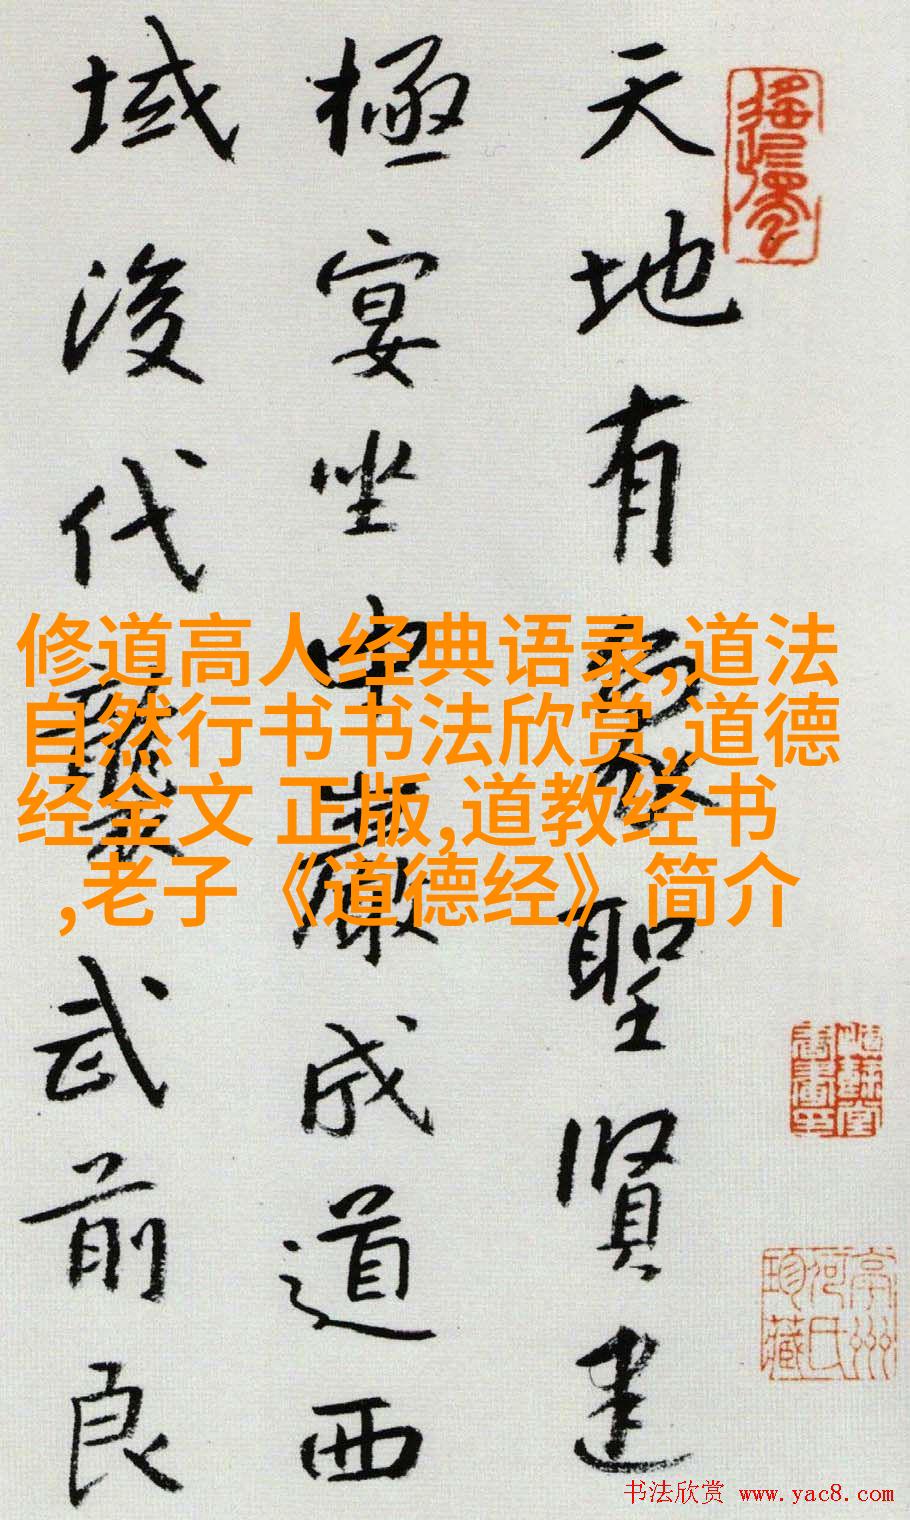 天地有象聖賢建
極宴坐中嚴成道西
域後代襲武前良
修道高人经典语录,道法
自然行书书法欣赏,道德
经全文 正版,道教经书
,老子《道德经》简介
珍藏
河氏
亭州
书法欣赏 www.yac8.com